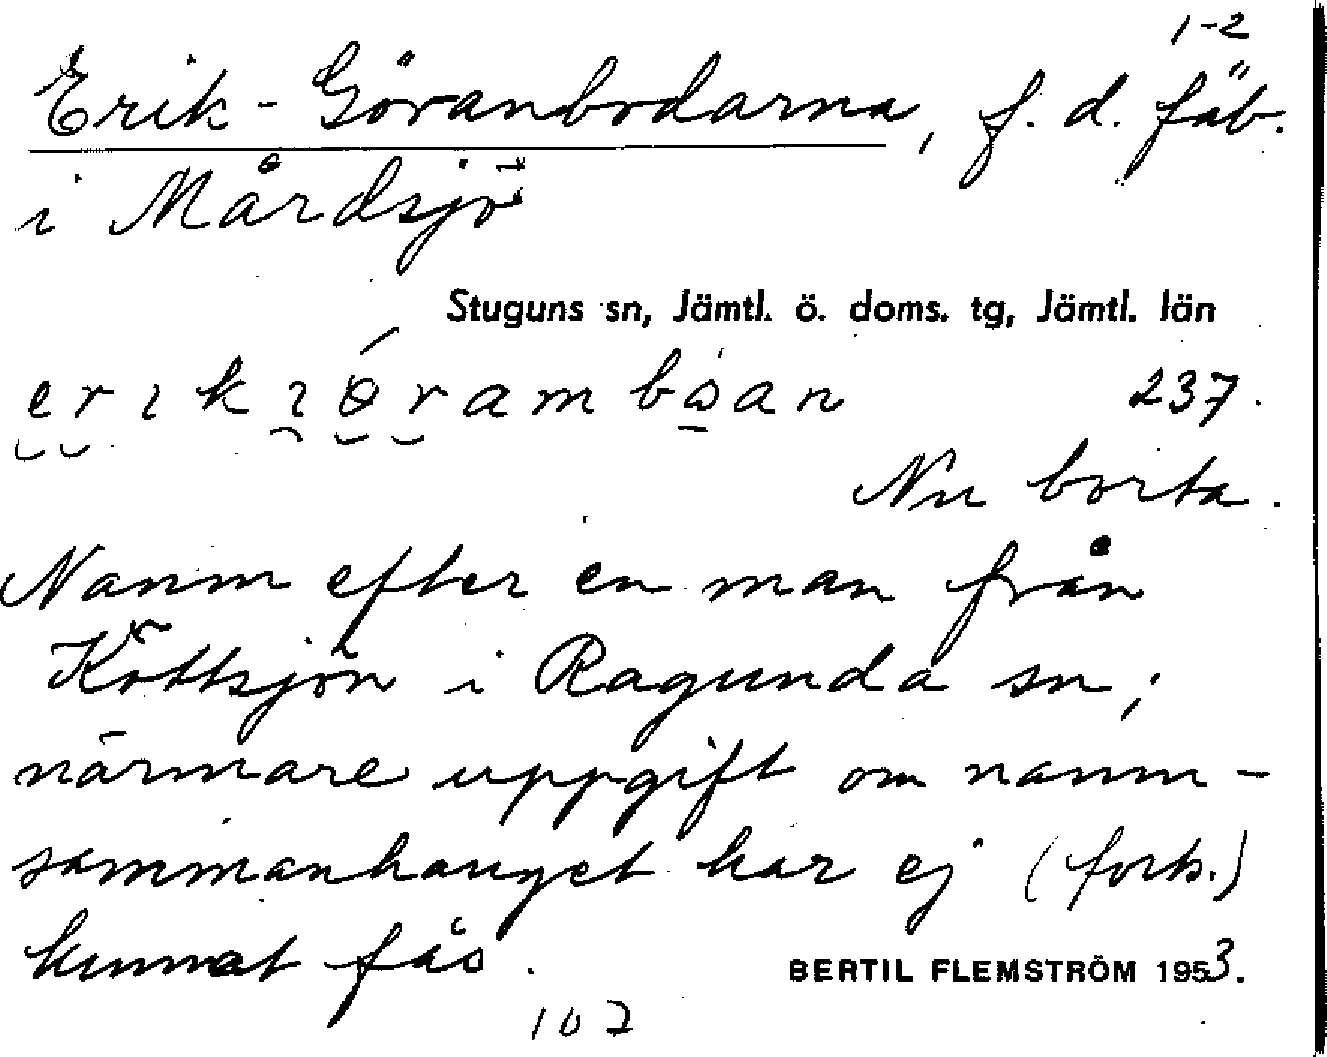 1-2
Erik-Göranbodarna, f. d. fäb.
i Mårdsjö
Stuguns sn, Jämtl. ö. doms. tg, Jämtl. län
237.
Nu borta.
Namn efter en man från
Köttsjön i Ragunda sn;
närmare uppgift om namn-
sammanhanget har ej (forts.)
kunnat fås.
BERTIL FLEMSTRÖM 1953.
107